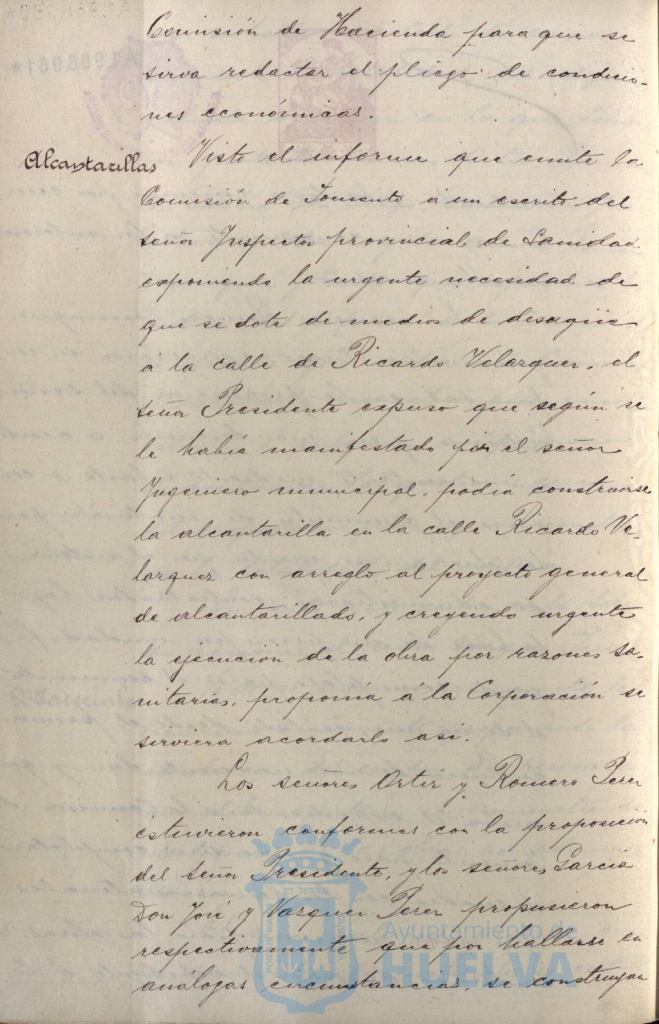 Comisión de Hacienda para que se
sirva redactar el pliego de condicio-
nes económicas.
Alcantarillas
Visto el informe que emite la
Comisión de Fomento á un escrito del
señor Inspector provincial de Sanidad
exponiendo la urgente necesidad de
que se dote de medios de desagüe
á la calle de Ricardo Velazquez, el
señor Presidente expuso que según se
le había manifestado por el señor
Ingeniero municipal, podía construirse
la alcantarilla en la calle Ricardo Ve-
lazquez con arreglo al proyecto general
de alcantarillado, y creyendo urgente
la ejecución de la obra por razones sa-
nitarias, proponía á la Corporación se
sirviera acordarlo así.
Los señores Ortiz y Romero Perez
estuvieron conformes con la proposición
del señor Presidente, y los señores García
Don José y Vazquez Perez propusieron
respectivamente que por hallarse en
análogas circunstancias, se construyan
Ayuntamiento de
HUELVA